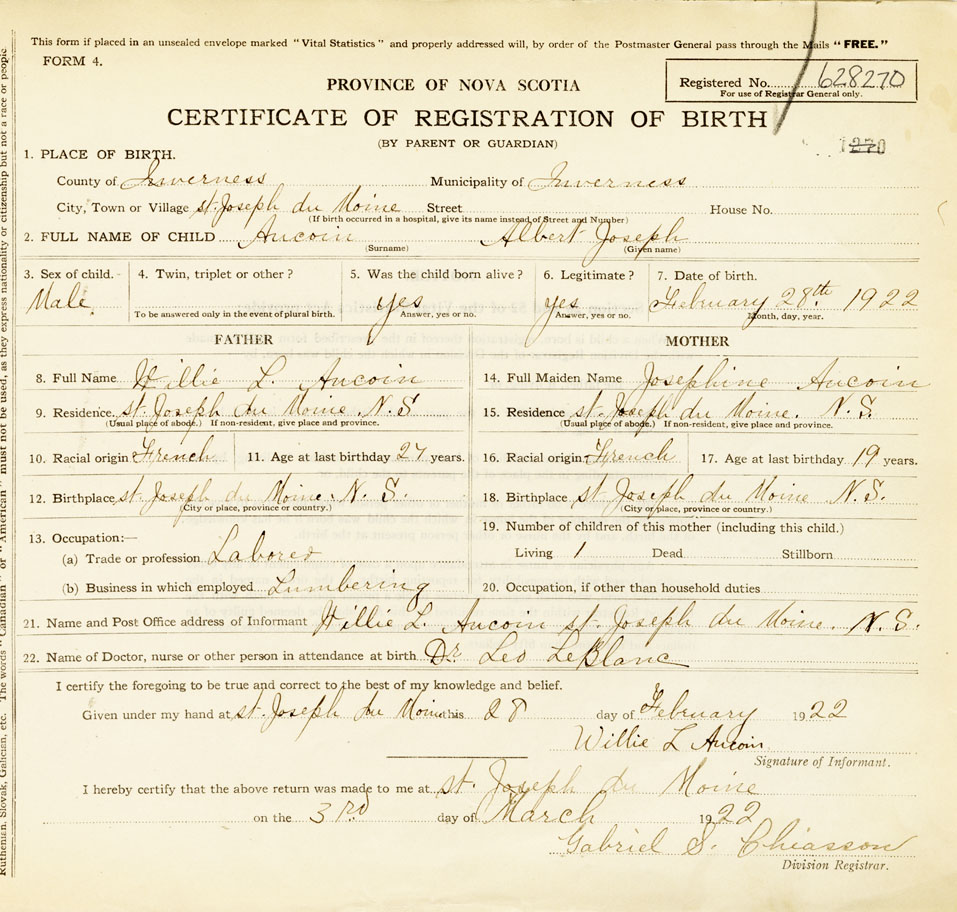 This form if placed in an unsealed envelope marked "Vital Statistics" and properly addressed will, by order of the Postmaster General pass through the Mails "FREE."
FORM 4.
PROVINCE OF NOVA SCOTIA
Registered No. 628270
For use of Registrar General only.
CERTIFICATE OF REGISTRATION OF BIRTH
(BY PARENT OR GUARDIAN)
1270
1. PLACE OF BIRTH.
County of Inverness Municipality of Inverness
City, Town or Village St. Joseph du Moine Street House No.
(If birth occurred in a hospital, give its name instead of Street and Number)
2. FULL NAME OF CHILD Aucoin Albert Joseph
(Surname) (Given name)
3. Sex of child. 4. Twin, triplet or other? 5. Was the child born alive? 6. Legitimate? 7. Date of birth.
Male yes yes February 28th 1922
To be answered only in the event of plural birth. Answer, yes or no. Answer, yes or no. Month, day, year.
FATHER MOTHER
8. Full Name Willie L. Aucoin 14. Full Maiden Name Josephine Aucoin
9. Residence. St. Joseph du Moine N.S 15. Residence St. Joseph du Moine. N.S.
(Usual place of abode.) If non-resident, give place and province. (Usual place of abode.) If non-resident, give place and province.
10. Racial origin French 11. Age at last birthday 27 years. 16. Racial origin French 17. Age at last birthday 19 years.
12. Birthplace St. Joseph du Moine. N. S. 18. Birthplace St. Joseph du Moine N.S.
(City or place, province or country.) (City or place, province or country.)
13. Occupation:— 19. Number of children of this mother (including this child.)
(a) Trade or profession Laborer Living 1 Dead Stillborn
(b) Business in which employed Lumbering 20. Occupation, if other than household duties
21. Name and Post Office address of Informant Willie L. Aucoin St. Joseph du Moine. N.S.
22. Name of Doctor, nurse or other person in attendance at birth Dr. Leo LeBlanc
I certify the foregoing to be true and correct to the best of my knowledge and belief.
Given under my hand at St. Joseph du Moine this 28 day of February 1922
Willie L Aucoin
Signature of Informant.
I hereby certify that the above return was made to me at St. Joseph du Moine
on the 3rd day of March 1922
Gabriel S. Chiasson
Division Registrar.
Ruthenian, Slovak, Galician, etc. The words "Canadian" or "American" must not be used, as they express nationality or citizenship but not a race or people